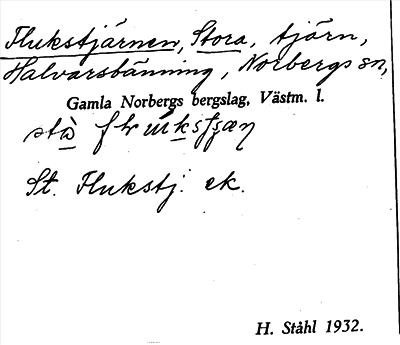 Flukstjärnen, Stora, tjärn,
Halvarsbänning, Norbergs sn,
Gamla Norbergs bergslag, Västm. l.
St. Flukstj. ek.
H. Ståhl 1932.